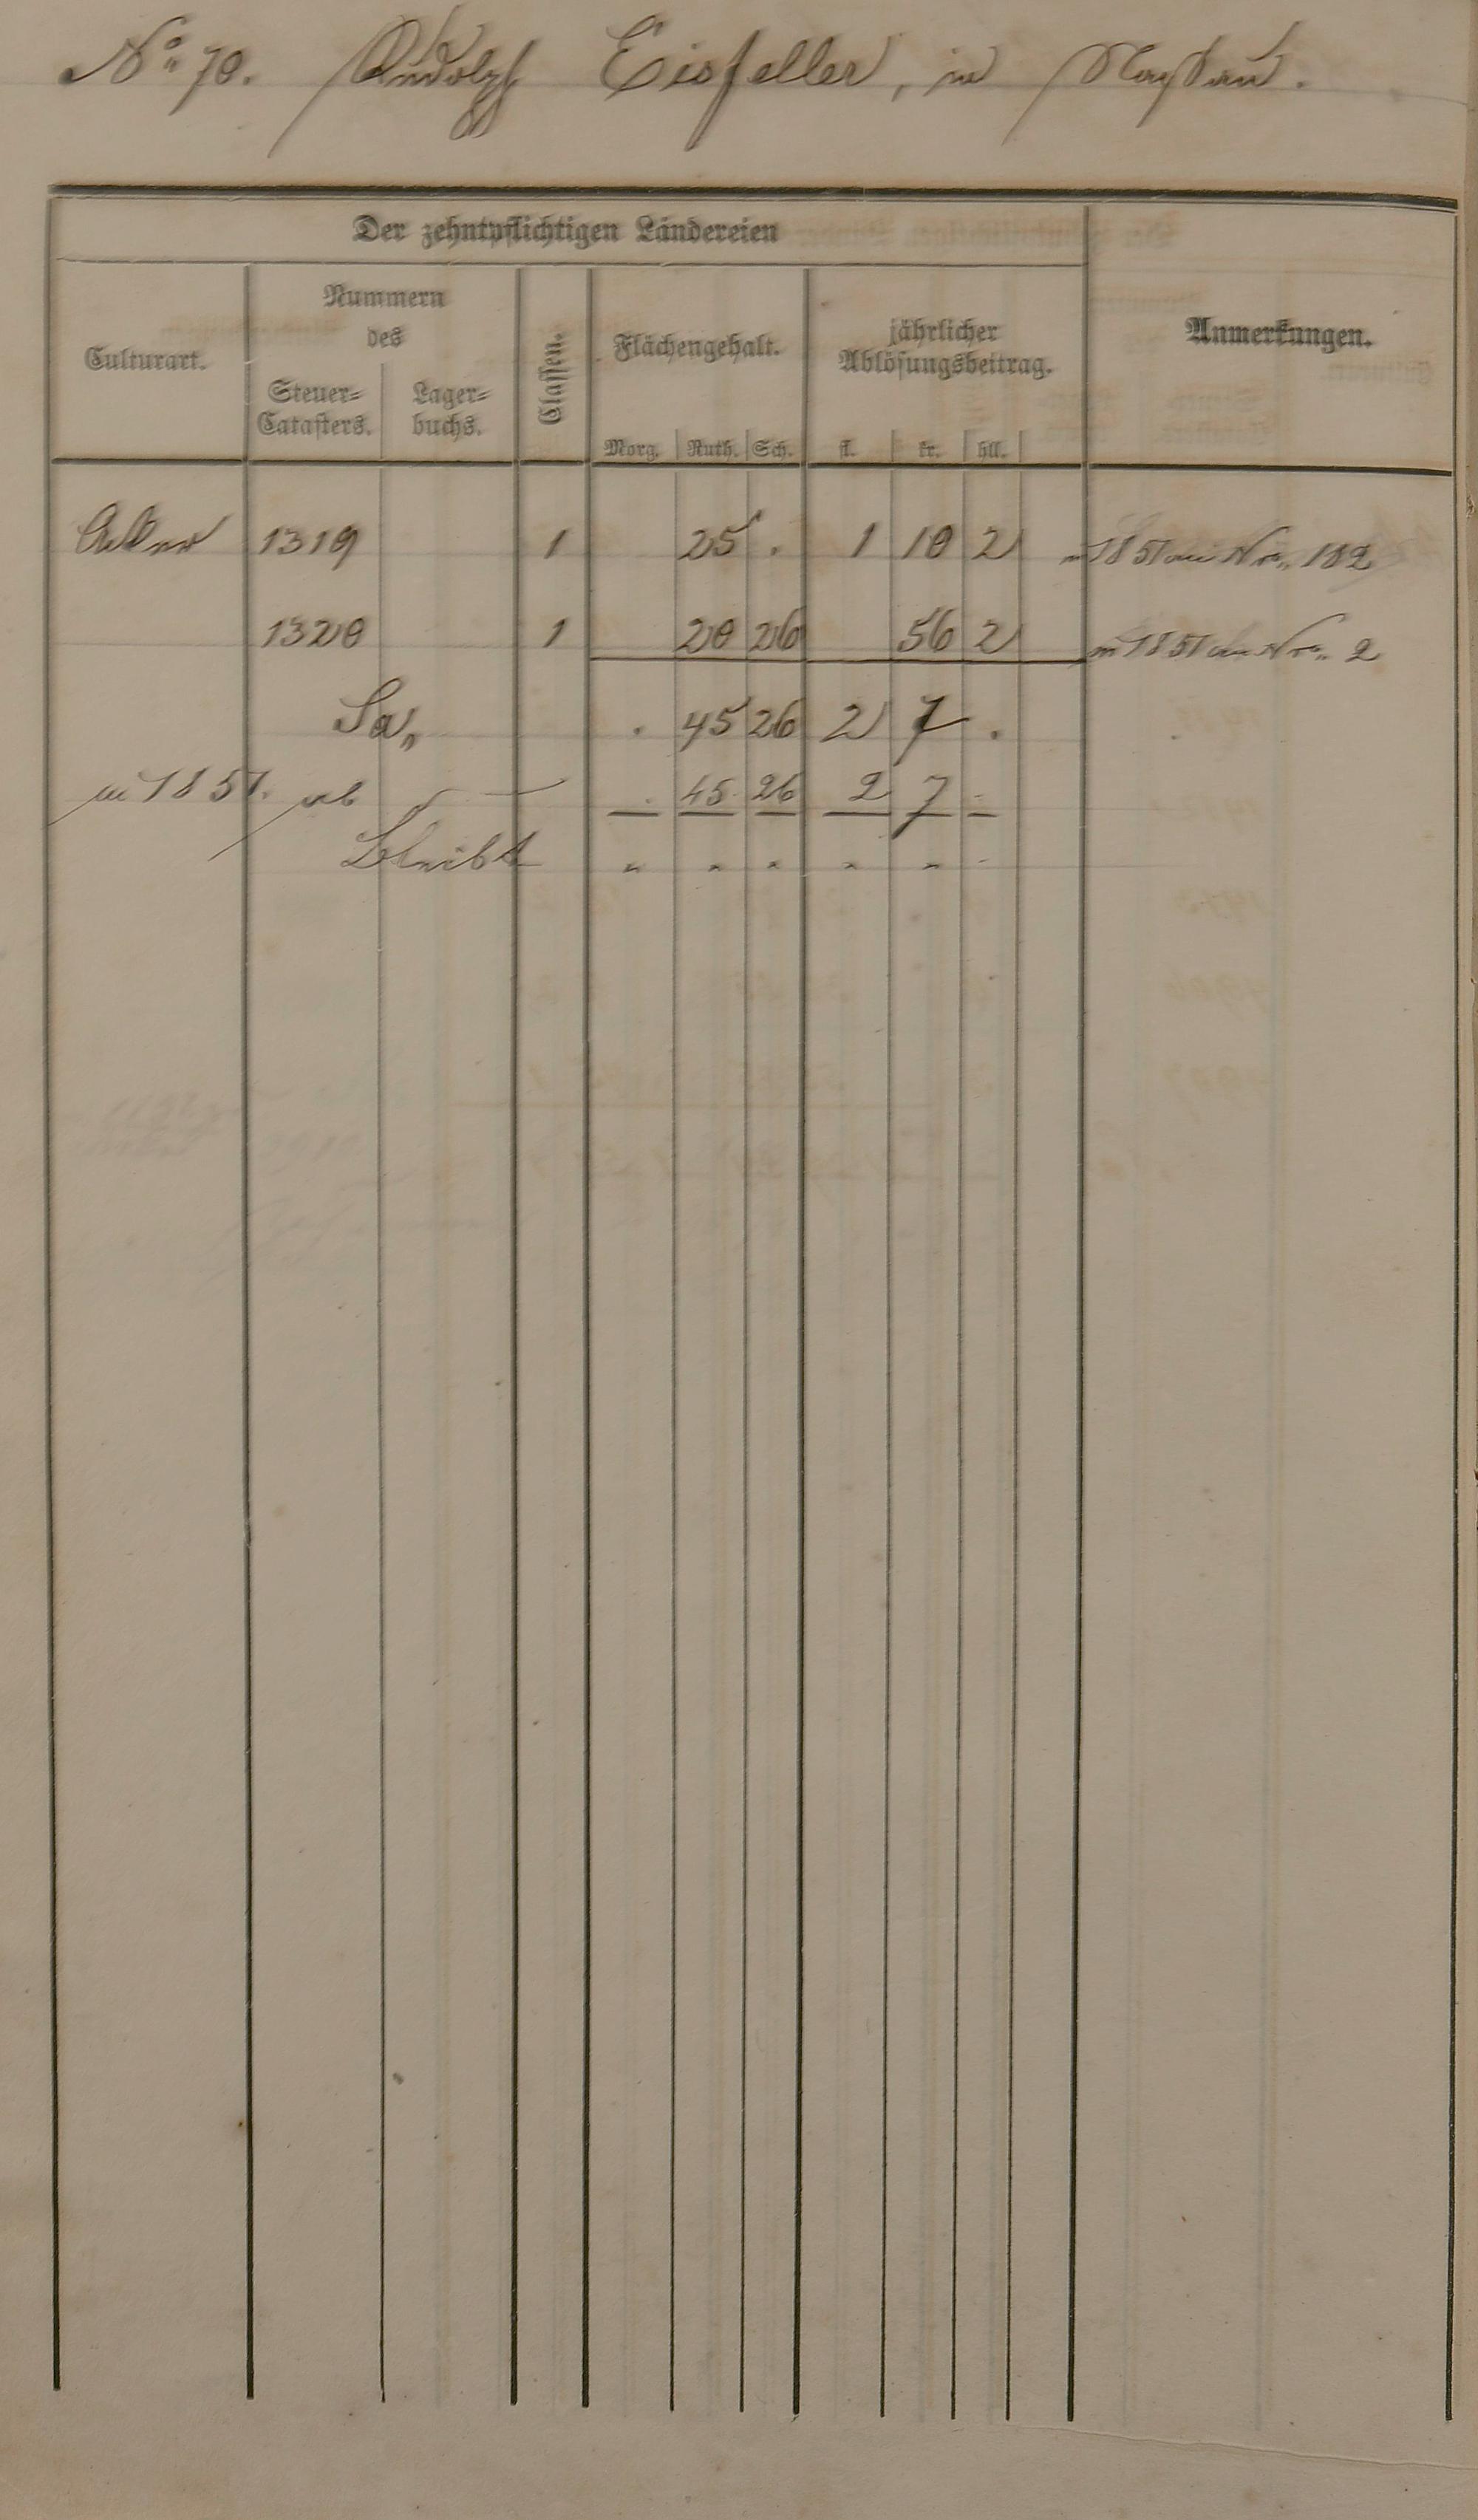 No. 70. Rudolph Eisfeller, in Nassau.
Der zehntpflichtigen Ländereien
Culturart.
Nummern
des
Steuer=
Catasters.
Lager=
buchs.
Classen.
Flächengehalt.
Morg. Ruth. Sch.
jährlicher
Ablösungsbeitrag.
fl. kr. hll.
Anmerkungen.
Acker 1319 1 25 . 1 10 2 in 1851 an Nro. 182
1320 1 20 26 56 2 in 1851 an Nro. 2
Sa. . 45 26 2 7 .
in 1851. ab . 45 26 2 7 -
Bleibt " " " " " -